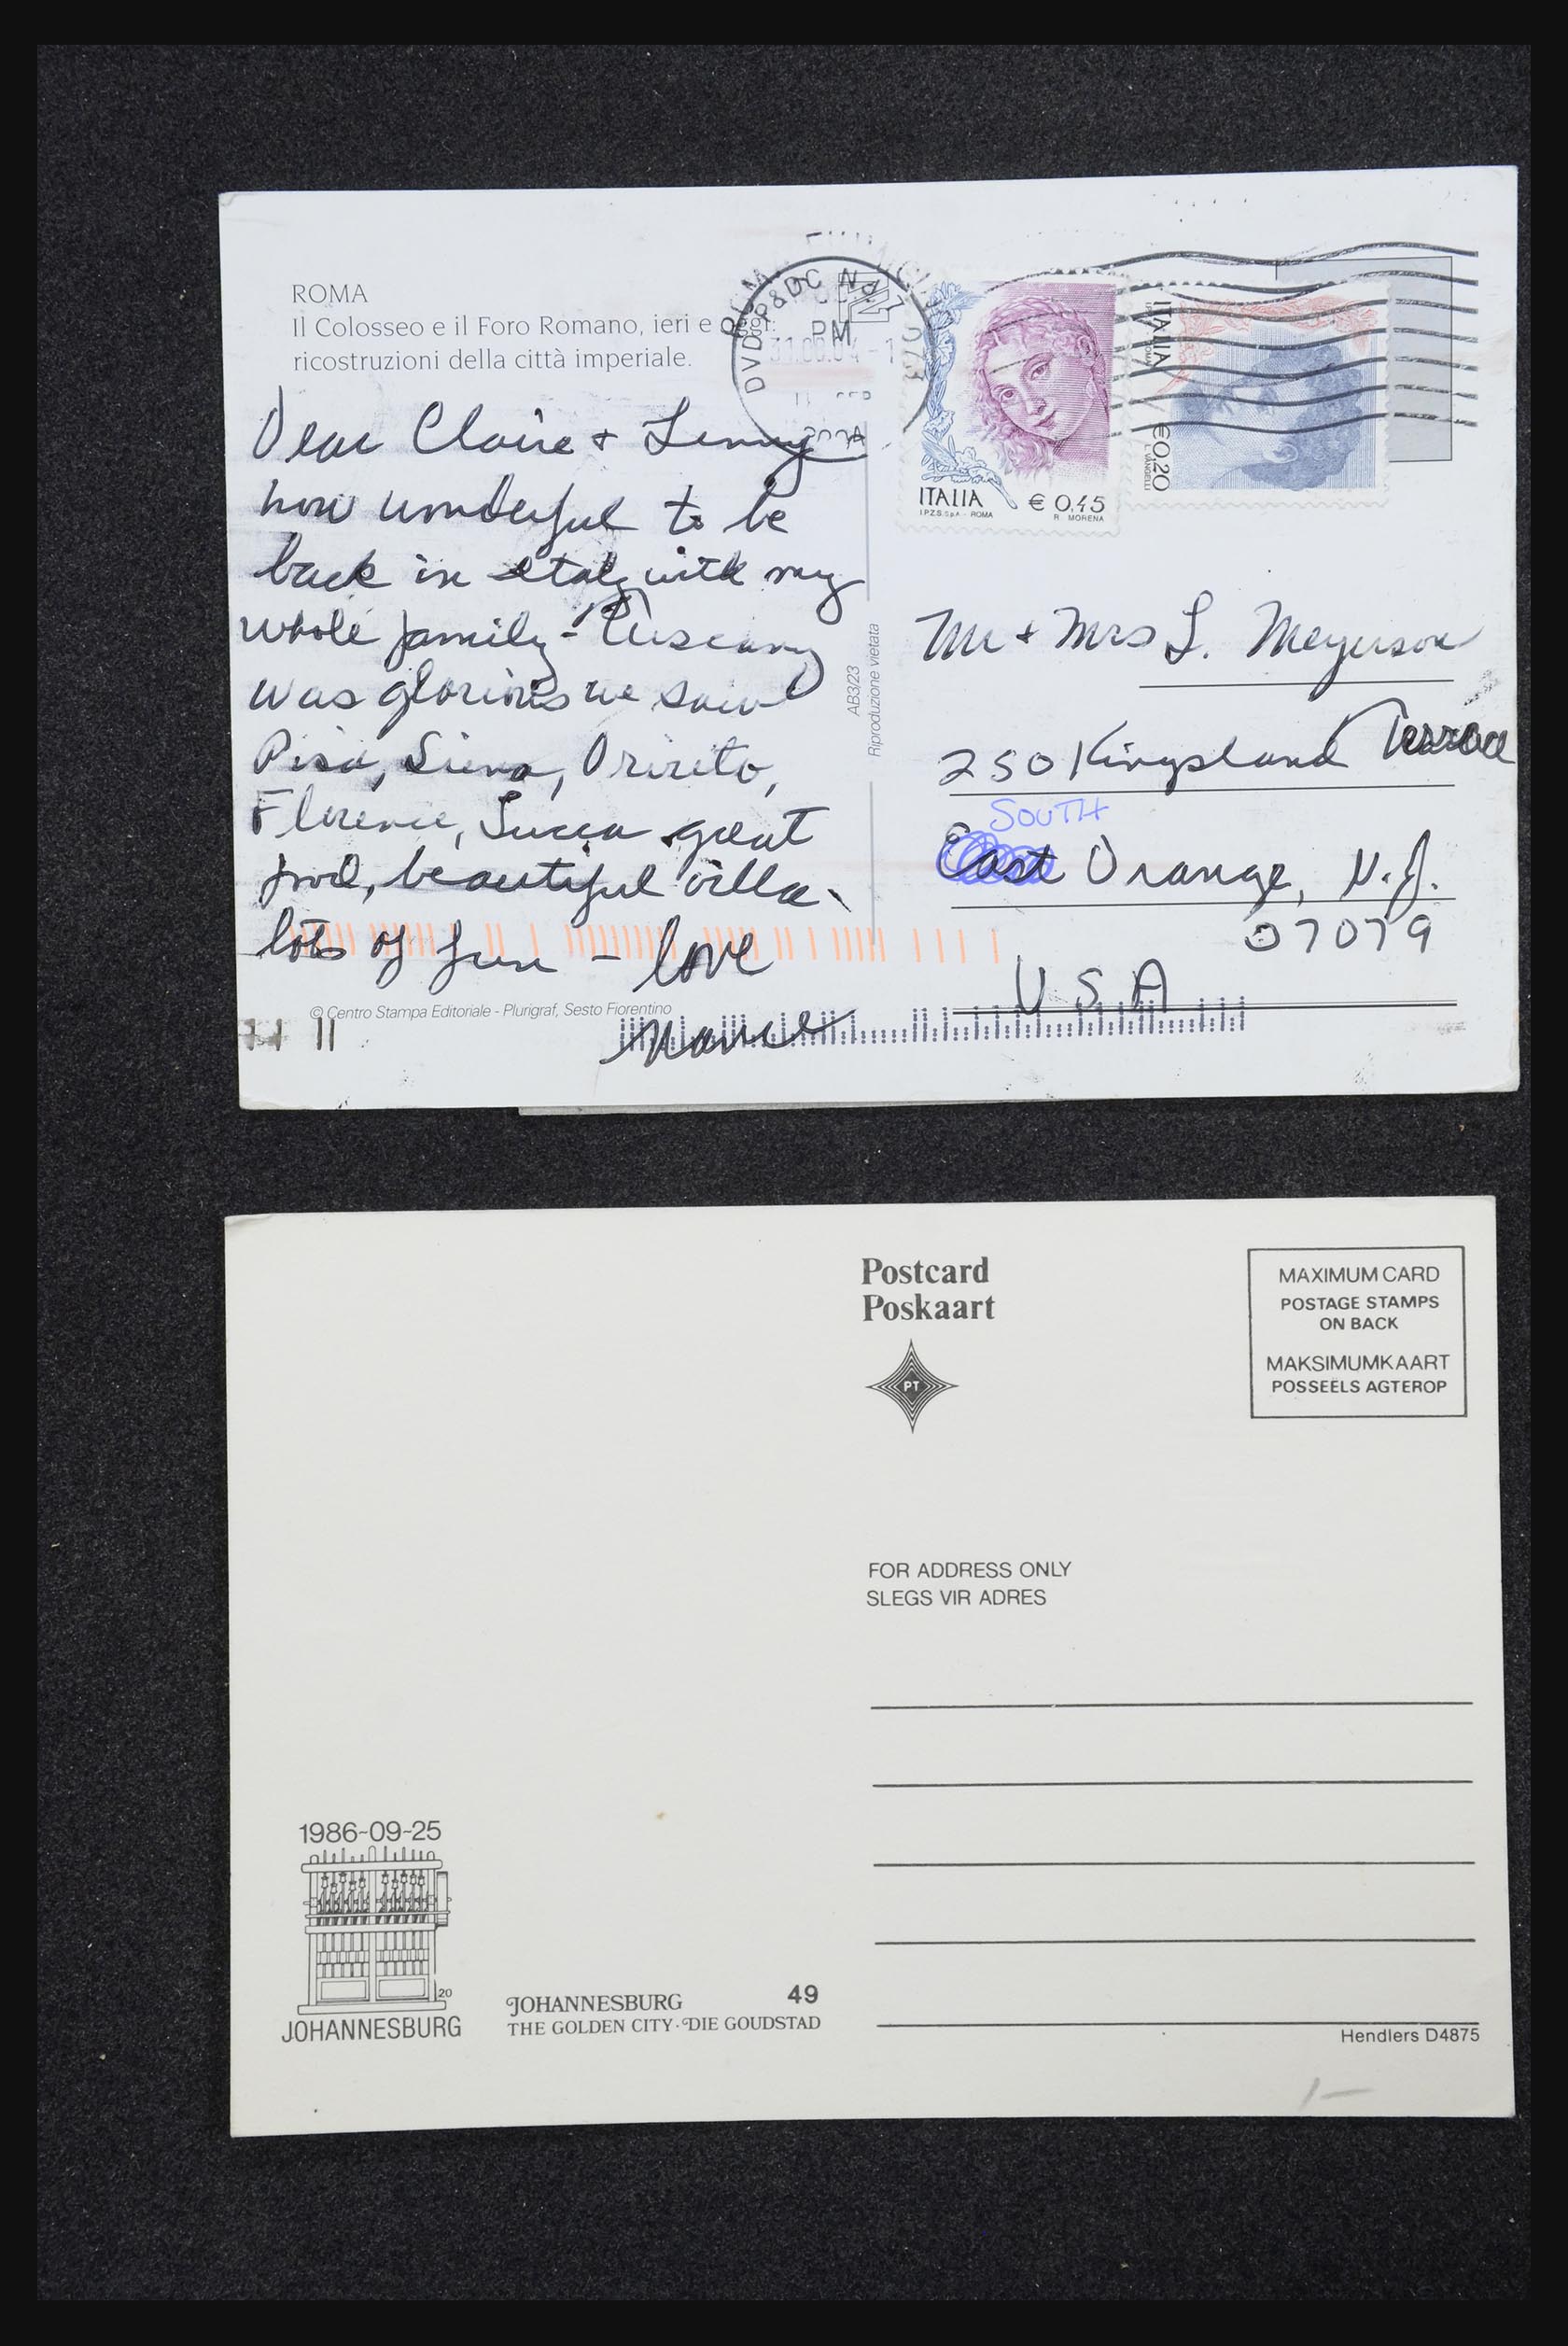 ROMA
Il Colosseo e il Foro Romano, ieri e oggi:
ricostruzioni della città imperiale.
DVD P&DC No. 1
PM
31.08.04 - 1
SEP
2004
ITALIA
€ 0,45
I.P.Z.S. S.p.A. - ROMA
R. MORENA
ITALIA
€0,20
Dear Claire + Lenny
how wonderful to be
back in Italy with my
whole family - Tuscany
was glorious we saw
Pisa, Siena, Orvieto,
Florence, Lucca great
food, beautiful villa -
lots of fun - love
© Centro Stampa Editoriale - Plurigraf, Sesto Fiorentino
AB3/23
Riproduzione vietata
Mr + Mrs L. Meyerson
250 Kingsland Terrace
SOUTH
East Orange, N.J.
07079
USA
Postcard
Poskaart
PT
MAXIMUM CARD
POSTAGE STAMPS
ON BACK
MAKSIMUMKAART
POSSEËLS AGTEROP
FOR ADDRESS ONLY
SLEGS VIR ADRES
1986-09-25
20
JOHANNESBURG
JOHANNESBURG 49
THE GOLDEN CITY · DIE GOUDSTAD
Hendlers D4875
1-